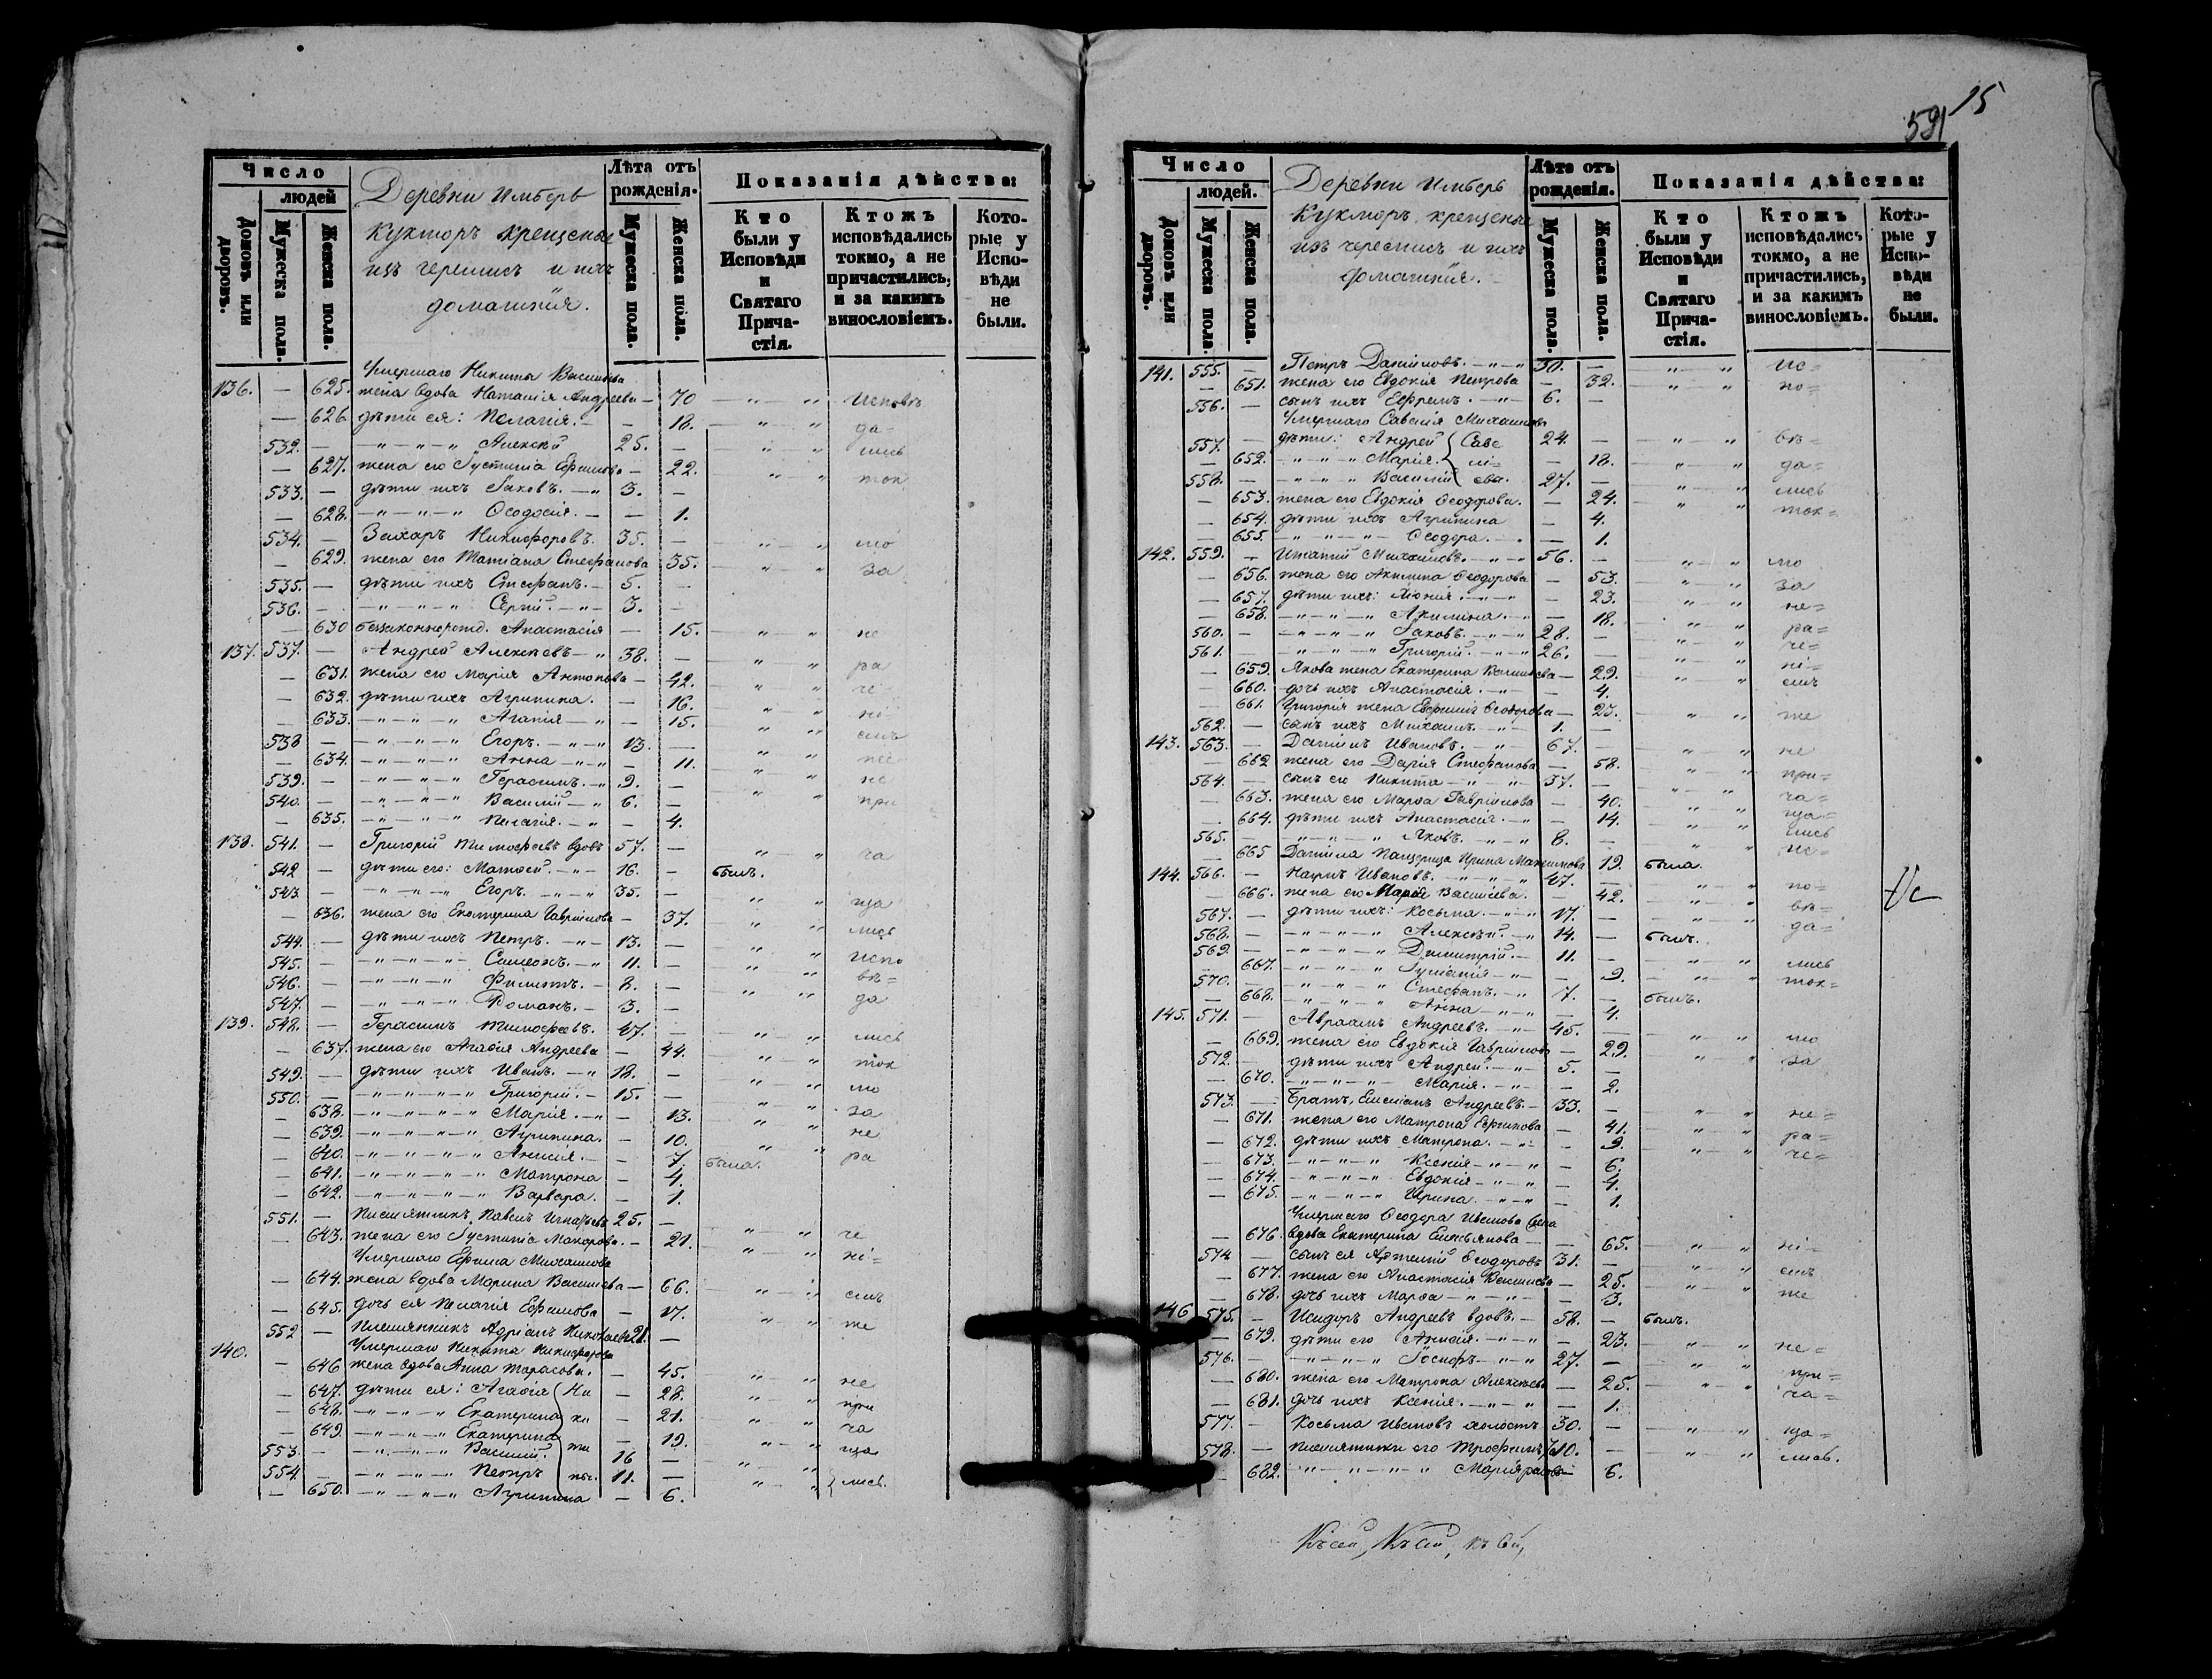 15
591
Число
людей
Домовъ или дворовъ.
Мужеска пола.
Женска пола.
Деревни Имберь
Кукморъ крещеные
изъ черемисъ и ихъ
домашнiя.
Лѣта отъ рожденiя.
Мужеска пола.
Женска пола.
Показанiя дѣйства:
Кто были у Исповѣди и Святаго Прича-стiя.
Ктожъ исповѣдались токмо, а не причастились, и за какимъ винословiемъ.
Кото-рые у Испо-вѣди не были.
Умершаго Никиты Васильева
136. — 625. жена вдова Наталiя Андреева — 70 Исповѣ
— 626. дѣти ея: Пелагiя. — 18. да-
532. — Алексѣй 25. — лись
— 627. жена его Iустинiа Ефимова — 22. ток
533. — дѣти ихъ Iаковъ. 3. —
— 628. Ѳеодосiя. — 1.
534. — Захаръ Никифоровъ. 35. — мо
— 629. жена его Татiана Стефанова 35. за
535. — дѣти ихъ Стефанъ. 5. —
536. — Сергiй. 3. —
— 630 беззаконнорожд. Анастасiя — 15. не
137. 537. — Андрей Алексѣевъ 38. — ра
— 631. жена его Марiя Антонова — 42. че
— 632. дѣти ихъ Агрипина. — 16. нi
— 633. Агапiя — 15. емъ
538 — Егоръ. 13. —
— 634. Анна — 11.
539. — Герасимъ. 9. — не
540. — Василiй 6. — при
— 635. Пелагiя. — 4.
138. 541. — Григорiй Тимофеевъ вдовъ 57. — ча
542 — дѣти его: Матфей. 16. — былъ.
543. — Егоръ. 35. — ща
— 636. жена его Екатерина Гаврiилова — 37. лись
544. — дѣти ихъ Петръ. 13. — испо
545. — Симеонъ. 11. — вѣ=
546. — Филиппъ. 8. — да
547. — Романъ. 3. —
139. 548. — Герасимъ Тимофеевъ. 47. — лись
— 637. жена его Агафiя Андреева — 44. ток
549. — дѣти ихъ Иванъ. 18. — мо
550. — Григорiй. 15. — за
— 638. Марiя. — 13. не
— 639. Агрипина. — 10. ра
— 640. Анисiя. — 7. была.
— 641. Матрона — 4.
— 642. Варвара. — 1.
551. — Племянникъ Павелъ Игнатьевъ 25. — че
— 643. жена его Iустинiа Макарова. — 21. нi=
Умершаго Ефима Михаилова
— 644. жена вдова Марина Васильева — 66. емъ
— 645. дочь ея Пелагiя Ефимова — 17. же
552 — Племянникъ Адрiанъ Николаевъ 21. —
140. Умершаго Никита Никифорова
— 646 жена вдова Анна Тарасова. — 45. не
— 647. дѣти ея: Агафiя Ни — 28. при
— 648. Екатерина ки — 21. ча
— 649 Екатерина — 19. ща
553. — Василiй ти 16 —
554. — Петръ ны. 11. — лись.
— 650. Агрипина — 6.
Число
людей.
Домовъ или дворовъ.
Мужеска пола.
Женска пола.
Деревни Имберь
Кукморъ крещеные
изъ черемисъ и ихъ
домашнiя.
Лѣта отъ рожденiя.
Мужеска пола.
Женска пола.
Показанiя дѣйства:
Кто были у Исповѣди и Святаго Прича-стiя.
Ктожъ исповѣдались токмо, а не причастились, и за какимъ винословiемъ.
Кото-рые у Испо-вѣди не были.
141. 555. — Петръ Данiиловъ. 30. — ис=
— 651. жена его Евдокiя Петрова — 32. по=
556. — сынъ ихъ Ефремъ. 6. —
Умершаго Савелiя Михаилова
557. — дѣти: Андрей Саве 24. — вѣ=
— 652. Марiя. лi= — 18. да=
558. — Василiй ева. 27. — лись
— 653. жена его Евдокiя Ѳеодорова. — 24. ток=
— 654. дѣти ихъ Агрипина — 4.
— 655. Ѳеодора. — 1.
142. 559. — Игнатiй Михаиловъ. 56. — мо
— 656. жена его Акилина Ѳеодорова — 53. за
— 657. дѣти ихъ: — 23. не=
— 658. Акилина. — 18. ра=
560. — Iаковъ. 28. — че=
561. — Григорiй. 26. — нi=
— 659. Якова жена Екатерина Васильева — 29. емъ
— 660. дочь ихъ Анастасiя. — 4.
— 661. Григорiя жена Евфимiя Ѳеодорова — 23. же
562. — сынъ ихъ Михаилъ. 1. —
143. 563. — Данiилъ Ивановъ. 67. — не
— 662 жена его Дарiя Стефанова — 58. при=
564. — сынъ его Никита 37. — ча=
— 663. жена его Марѳа Гаврiилова — 40. ща=
— 664. дѣти ихъ Анастасiя. — 14. лись
565. — Яковъ. 8. — ис=
— 665 Данiила Падчерица Ирина Максимова 19. была.
144. 566. — Наумъ Ивановъ. 47. — по=
— 666. жена его Марiя Васильева. — 42. вѣ=
567. — дѣти ихъ: Косьма. 17. — да=
568. — Алексѣй. 14. — былъ.
569. — Димитрiй. 11. — лись
— 667. Iулiанiя — 9. ток=
570. — Стефанъ. 7. — былъ.
— 668. Анна — 4.
145. 571. — Авраамъ Андреевъ. 45. — мо
— 669. жена его Евдокiя Гаврiилова — 29. за
572. — дѣти ихъ Андрей. 5. —
— 670. Марiя. — 2.
573. — Братъ, Емелiанъ Андреевъ. 33. — не=
— 671. жена его Матрона Ефимова — 41. ра=
— 672. дѣти ихъ Матрона. — 9. че=
— 673. Ксенiя — 6.
— 674. Евдокiя — 4.
— 675. Ирина — 1.
Умершаго Ѳеодора Иванова жена
— 676. вдова Екатерина Емельянова — 65. нi=
574 — сынъ ея Артемiй Ѳеодоровъ 31. — емъ
— 677. жена его Анастасiя Васильева — 25. же
— 678. дочь ихъ Марѳа — 3.
146 575. — Исидоръ Андреевъ вдовъ. 58. — былъ.
— 679. дѣти его Анисiя. — 23. не=
576. — Iосифъ 27. — при=
— 680. жена его Матрона Алексѣева — 25. ча=
— 681. дочь ихъ Ксенiя. — 1.
577. — Косьма Ивановъ холостъ 30. — ща=
578. — племянники его Трофимъ 10. — лись.
— 682. Марiя — 6.